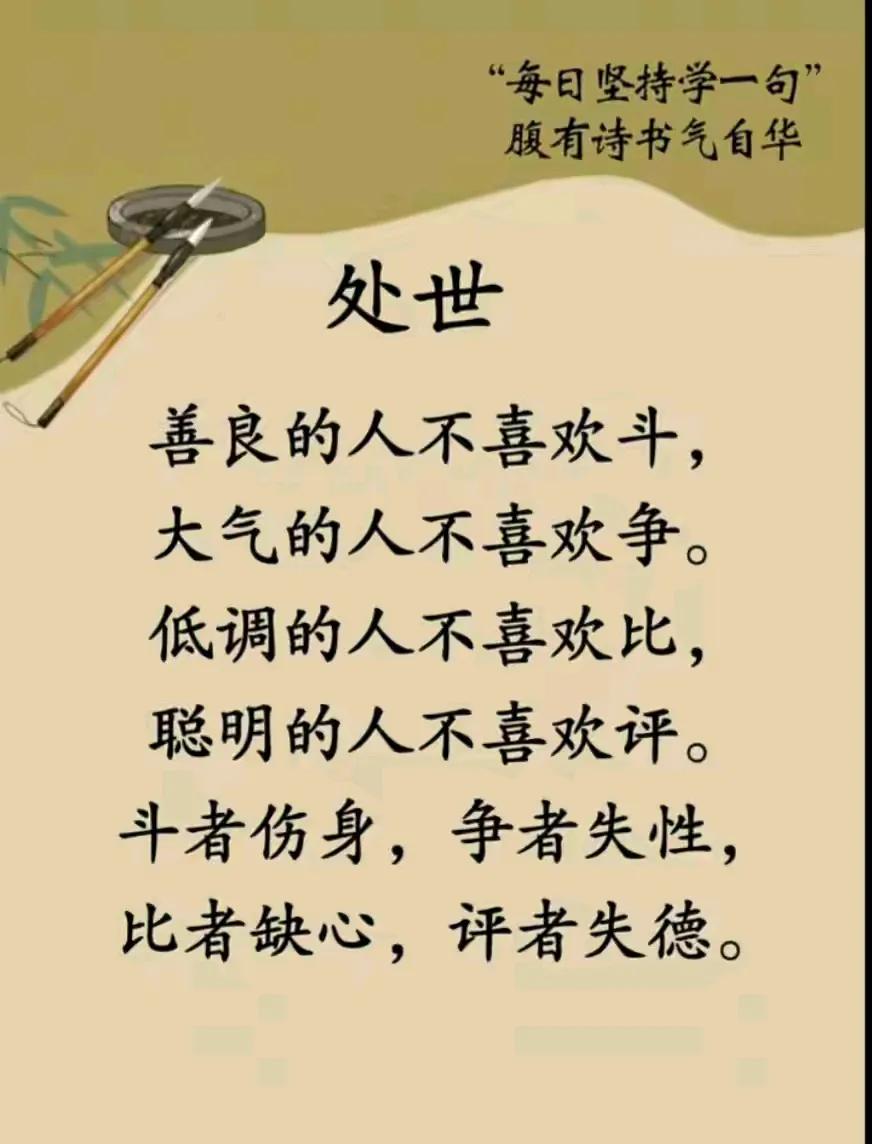 “每日坚持学一句”
腹有诗书气自华
处世
善良的人不喜欢斗，
大气的人不喜欢争。
低调的人不喜欢比，
聪明的人不喜欢评。
斗者伤身，争者失性，
比者缺心，评者失德。